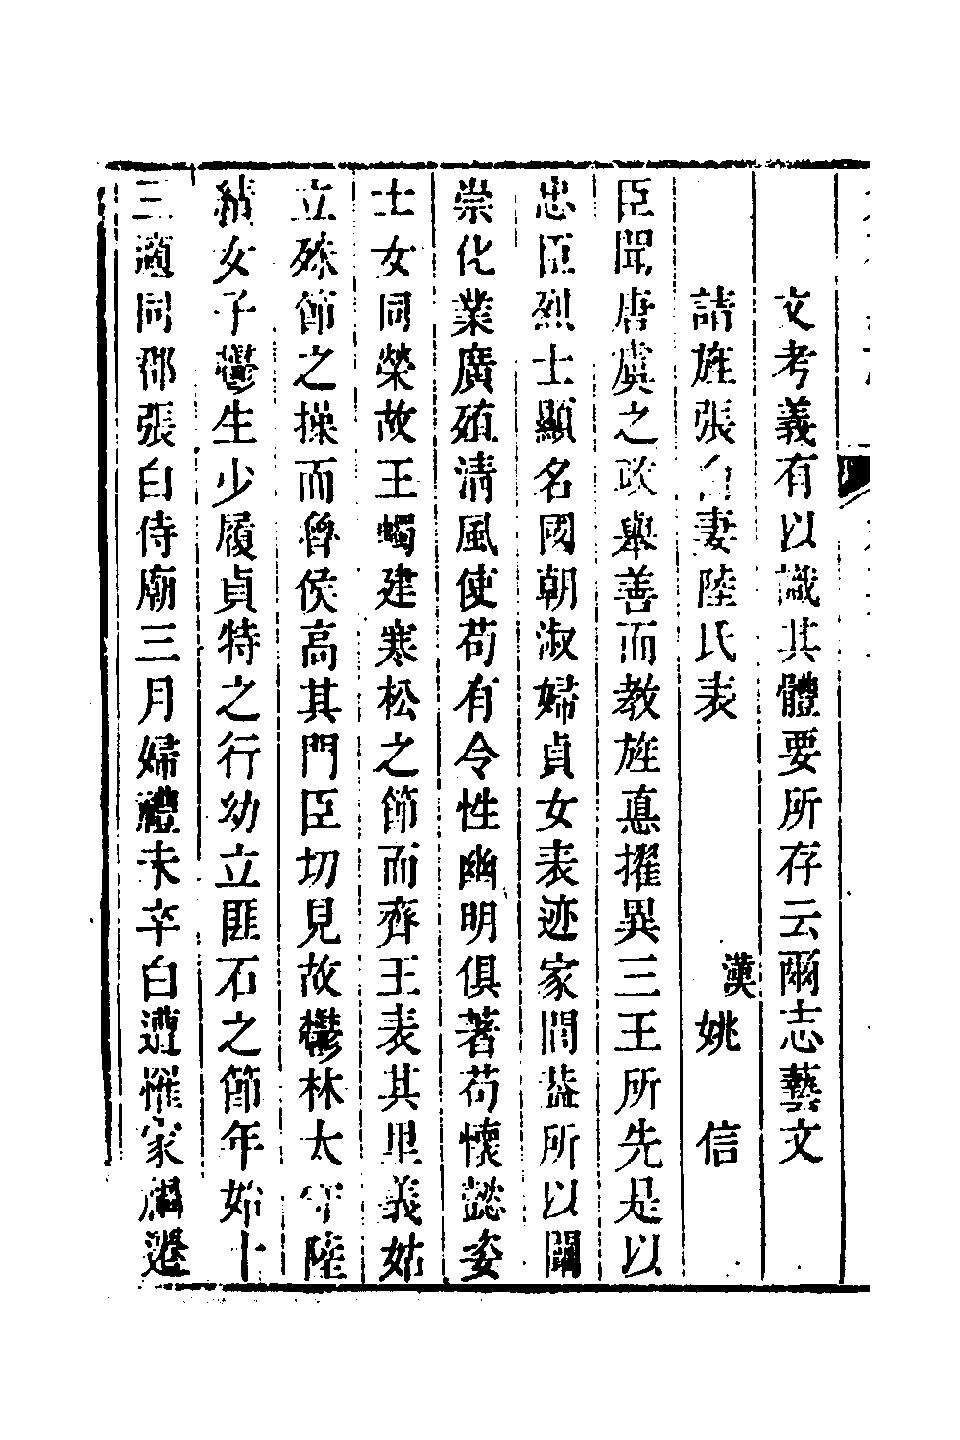 文考義有以識其體要所存云爾志藝文
請旌張白妻陸氏表 漢姚信
臣聞唐虞之政舉善而教旌悳擢異三王所先是以
忠臣烈士顯名國朝淑婦貞女表迹家閭葢所以闡
崇化業廣殖清風使苟有令性幽明俱著苟懷懿姿
士女同榮故王蠋建寒松之節而齊王表其里義姑
立殊節之操而魯侯高其門臣切見故鬱林太守陸
績女子鬱生少履貞特之行幼立匪石之節年始十
三適同郡張白侍廟三月婦禮未卒白遭罹家禍遷